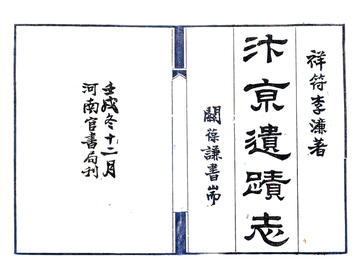 祥符李濂著
汴京遺蹟志
關葆謙書耑
壬戌冬十二月
河南官書局刊